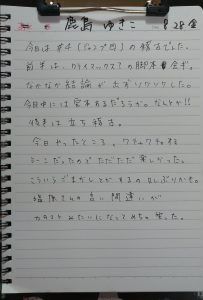 鹿島 ゆきこ 8/28 金
今日は #4 (ジャンプ的) の稽古でした。
前半は、クライマックスでの脚本会議。
なかなか結論が出ずソワソワした。
今日中には定本あるだろうか。なんとか!!
後半は 立ち稽古。
今日やったところ、ワチャワチャする
シーンだったのでただただ楽しかった。
こういうごまかしとかするの久しぶりかも。
さんの言い間違いが
みたいになってめちゃ笑った。